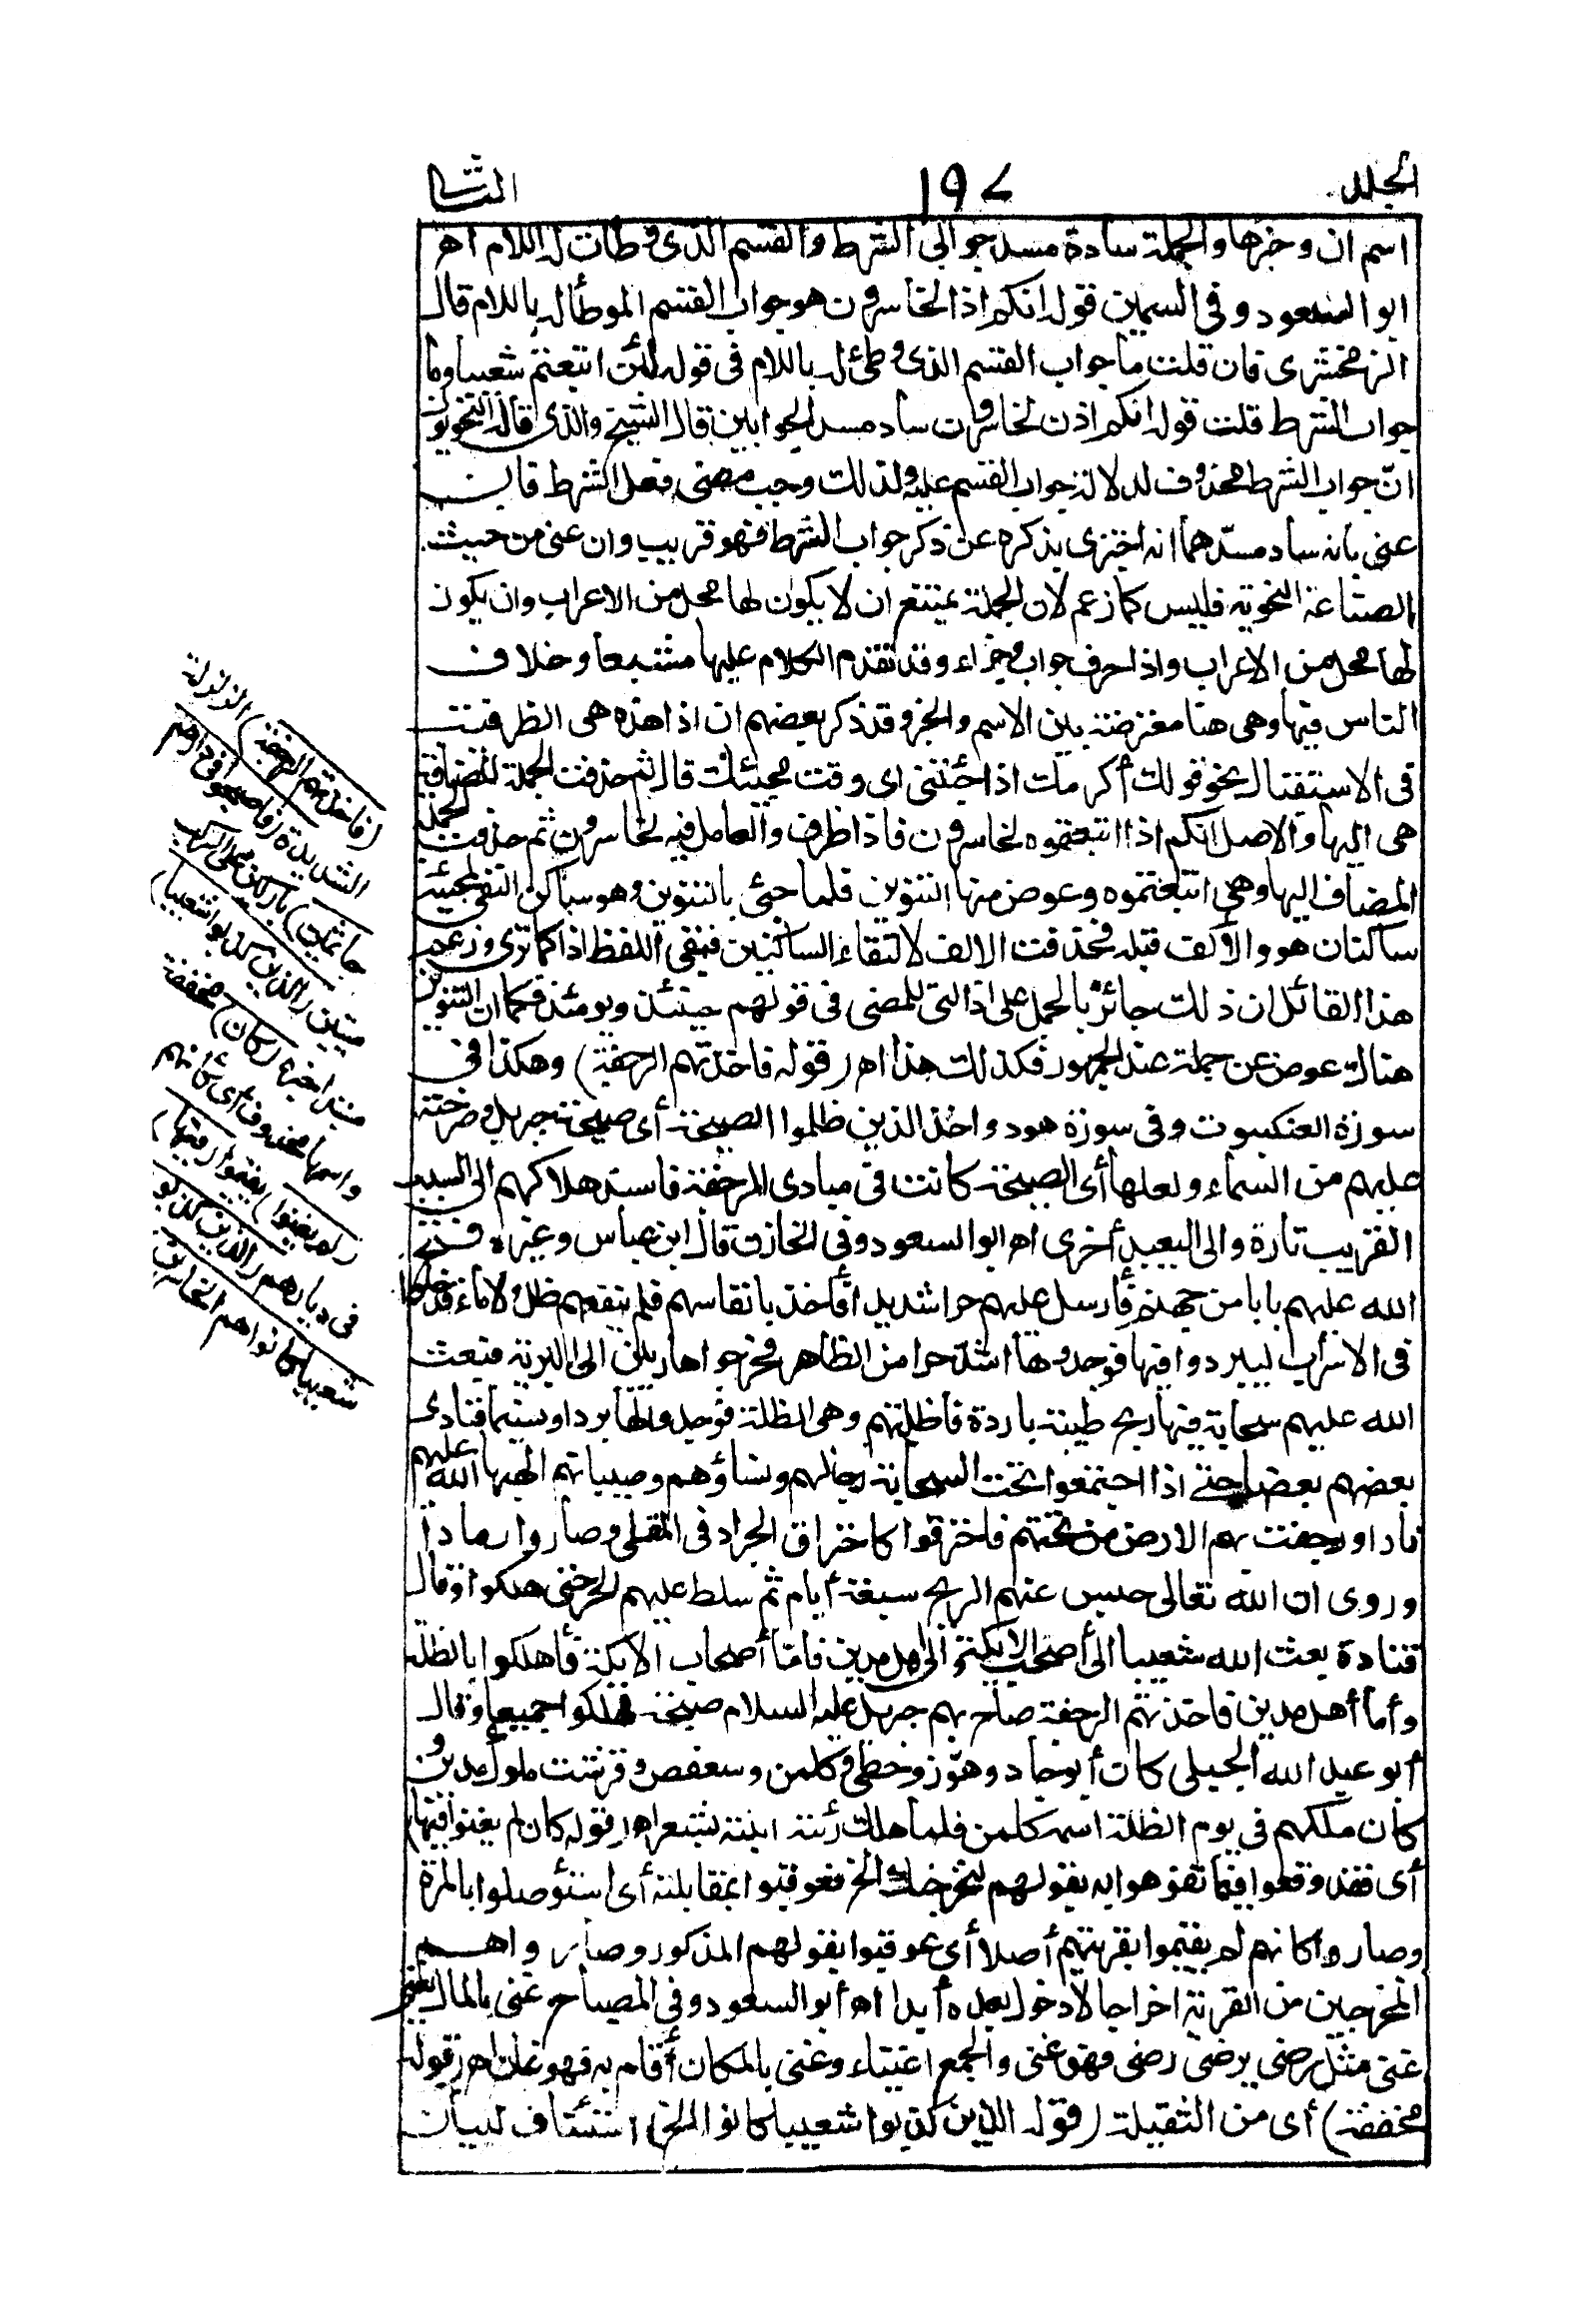 الجلد ١٩٧ الثانى
اسم ان وخبرها والجملة سادة مسد جوابى الشرط والقسم الذى وطأت له اللام اهـ
ابو السعود وفى السمين قوله انكم اذا لخاسرون هو جواب القسم الموطأ له باللام قال
الزمخشرى فان قلت ما جواب القسم الذى وطئ له باللام فى قوله لئن اتبعتم شعيبا وما
جواب الشرط قلت قوله انكم اذن لخاسرون ساد مسد الجوابين قال الشيخ والذى قاله النحويون
انّ جواب الشرط محذوف لدلالة جواب القسم عليه ولذلك وجب مضى فعل الشرط فان
عنى بانه ساد مسدّهما انه اجتزى بذكره عن ذكر جواب الشرط فهو قريب وان عنى من حيث
الصناعة النحوية فليس كما زعم لان الجملة يمتنع ان لا يكون لها محل من الاعراب وان يكون
لها محل من الاعراب واذا حرف جواب وجزاء وقد تقدم الكلام عليها مشبعا وخلاف
الناس فيها وهى هنا معترضة بين الاسم والخبر وقد ذكر بعضهم ان اذا هذه هى الظرفية
فى الاستقبال نحو قولك أكرمك اذا جئتنى اى وقت مجيئك قال ثم حذفت الجملة المضافة
هى اليها والاصل انكم اذا اتبعتموه لخاسرون فاذا ظرف والعامل فيه لخاسرون ثم حذفت الجملة
المضاف اليها وهى اتبعتموه وعوض منها التنوين فلما جئ بالتنوين وهو ساكن التقى لمجيئه
ساكنان هو والألف قبله فحذفت الالف لالتقاء الساكنين فبقى اللفظ اذا كما ترى وزعم
هذا القائل ان ذلك جائز بالحمل على اذ التى للمضى فى قولهم حينئذ ويومئذ فكما ان التنوين
هناك عوض عن جملة عند الجمهور فكذلك هذا اهـ (قوله فاخذتهم الرجفة) وهكذا فى
سورة العنكبوت وفى سورة هود واخذ الذين ظلموا الصيحة أى صيحة جبريل وصرخته
عليهم من السماء ولعلها أى الصيحة كانت فى مبادى الرجفة فاسند هلاكهم الى السبب
القريب تارة والى البعيد أخرى اهـ ابو السعود وفى الخازن قال ابن عباس وغيره فتح
الله عليهم بابا من جهنم فأرسل عليهم حرا شديدا فأخذ بانفاسهم فلم ينفعهم ظل ولا ماء فدخلوا
فى الاسراب ليبردوا فيها فوجدوها أشدّ حرا من الظاهر فخرجوا هاربين الى البرية فبعث
الله عليهم سحابة فيها ريح طيبة باردة فأظلتهم وهى الظلة فوجدوا لها بردا ونسيما فنادى
بعضهم بعضا حتى اذا اجتمعوا تحت السحابة رجالهم ونساؤهم وصبيانهم الهبها الله عليهم
نارا ورجفت بهم الارض من تحتهم فاحترقوا كاحتراق الجراد فى المقلى وصاروا رمادا
وروى ان الله تعالى حبس عنهم الريح سبعة أيام ثم سلط عليهم الحر حتى هلكوا وقال
قتادة بعث الله شعيبا الى أصحاب الايكة والى اهل مدين فاما أصحاب الايكة فأهلكوا بالظلة
وأما أهل مدين فاخذتهم الرجفة صاح بهم جبريل عليه السلام صيحة فهلكوا جميعا وقال
أبو عبد الله البجيلى كان أبو جاد وهوّز وحطى وكلمن وسعفص وقرشت ملوك مدين و
كان ملكهم فى يوم الظلة اسمه كلمن فلما هلك رثته ابنته بشعر اهـ (قوله كان لم يغنوا فيها)
أى فقد وقعوا فيما تفوهوا به بقولهم لنخرجنك الخ فعوقبوا بمقابلته أى استؤصلوا بالمرة
وصاروا كانهم لم يقيموا بقريتهم أصلا أى عوقبوا بقولهم المذكور وصاروا هم
المخرجين من القرية اخراجا لا دخول بعده أبدا اهـ أبو السعود وفى المصباح غنى بالمال يغنى
غنى مثل رضى يرضى رضى فهو غنى والجمع اغنياء وغنى بالمكان أقام به فهو غان اهـ (قوله
مخففة) أى من الثقيلة (قوله الذين كذبوا شعيبا كانوا الخ) استئناف لبيان
(فاخذتهم الرجفة) الزلزلة
الشديدة (فاصبحوا فى دارهم
جاثمين) باركين على الركب
ميتين (الذين كذبوا شعيبا)
مبتدا خبره (كان) مخففة
واسمها محذوف أى كأنهم
(لم يغنوا) يقيموا (فيها)
فى ديارهم (الذين كذبوا
شعيبا كانوا هم الخاسرين)